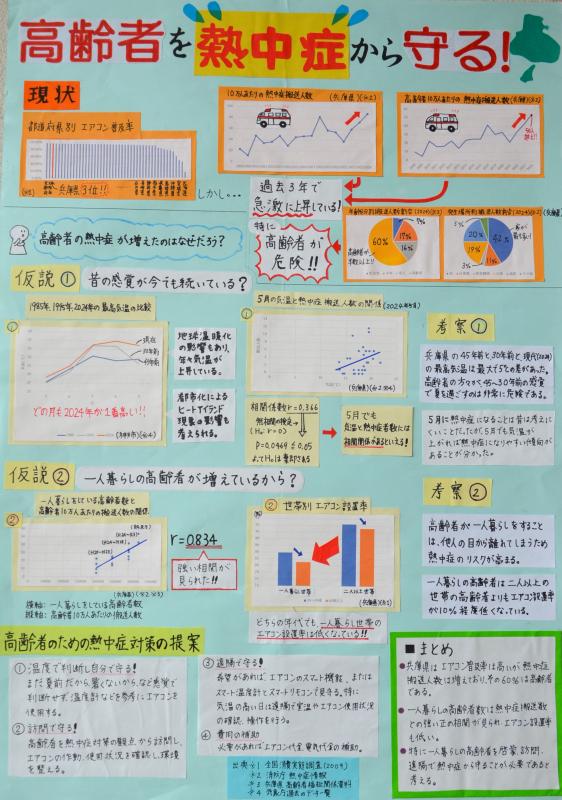 高齢者を熱中症から守る!
現状
都道府県別 エアコン普及率
兵庫3位!!
しかし…
10万人あたりの熱中症搬送人数 (兵庫県)(※2)
高齢者10万人あたりの熱中症搬送人数(兵庫)(※2)
過去3年で
急激に上昇している!
特に
高齢者が
危険!!
60%
17%
16%
7%
42%
20%
19%
11%
3%
5%
高齢者の熱中症が増えたのはなぜだろう?
仮説① 昔の感覚が今でも続いている?
1985年、1995年、2024年の最高気温の比較
①
現在
30年前
45年前
どの月も2024年が1番高い!!
地球温暖化
の影響もあり、
年々気温が
上昇している。
都市化による
ヒートアイランド
現象の影響も
考えられる。
5月の気温と熱中症搬送人数の関係(2024年5月)
①
相関係数r=0.366
無相関の検定
(H₀:r=0)
P=0.0469≦0.05
よってH₀は棄却される
5月でも
気温と熱中症者数には
相関関係があるといえる!
考察①
兵庫県の45年前と30年前と現代(2024)
の最高気温は最大で5℃の差があった。
高齢者の方々が45~30年前の感覚
で夏を過ごすのは非常に危険である。
5月に熱中症になることは昔は考えに
くいことだったが、5月でも気温が
上がれば熱中症になりやすい傾向が
あることが分かった。
仮説② 一人暮らしの高齢者が増えているから?
一人暮らしをしている高齢者数と
高齢者10万人あたりの搬送人数の関係
②
(兵庫県)(※2※3)
横軸: 一人暮らしをしている高齢者数
縦軸: 高齢者10万人あたりの搬送人数
r=0.834
強い相関が
見られた!!
② 世帯別 エアコン設置率
一人暮らし世帯
二人以上世帯
(兵庫県)(※1)
どちらの年代でも、一人暮らし世帯の
エアコン設置率は低くなっている!!
考察②
高齢者が一人暮らしをすること
は、他人の目から離れてしまうため
熱中症のリスクが高まる。
一人暮らしの高齢者は二人以上の
世帯の高齢者よりもエアコン設置率
が10%程度低くなっている。
高齢者のための熱中症対策の提案
① 温度で判断し自分で守る!
まだ夏前だから、暑くないから、など感覚で
判断せず、温度計などを参考にエアコンを
使用する。
② 訪問で守る!
高齢者を熱中症対策の観点から訪問し、
エアコンの作動、使用状況を確認し、環境
を整える。
③ 遠隔で守る!
希望があれば、エアコンのスマート機能、または
スマート温度計とスマートリモコンで見守る。特に
気温の高い日は遠隔で室温やエアコン使用状況
の確認、操作を行う。
④ 費用の補助
必要があればエアコン代金、電気代金の補助。
出典 ※1 全国消費実態調査(2009)
※2 消防庁 熱中症情報
※3 兵庫県 高齢者福祉関係資料
※4 気象庁過去のデータ一覧
■まとめ
●兵庫県はエアコン普及率は高いが、熱中症
搬送人数は増えており、その60%は高齢者
である。
●一人暮らしの高齢者数は熱中症搬送者数
との強い正の相関が見られ、エアコン設置率
も低い。
●特に一人暮らしの高齢者を啓蒙、訪問、
遠隔で熱中症から守ることが必要であると
考える。